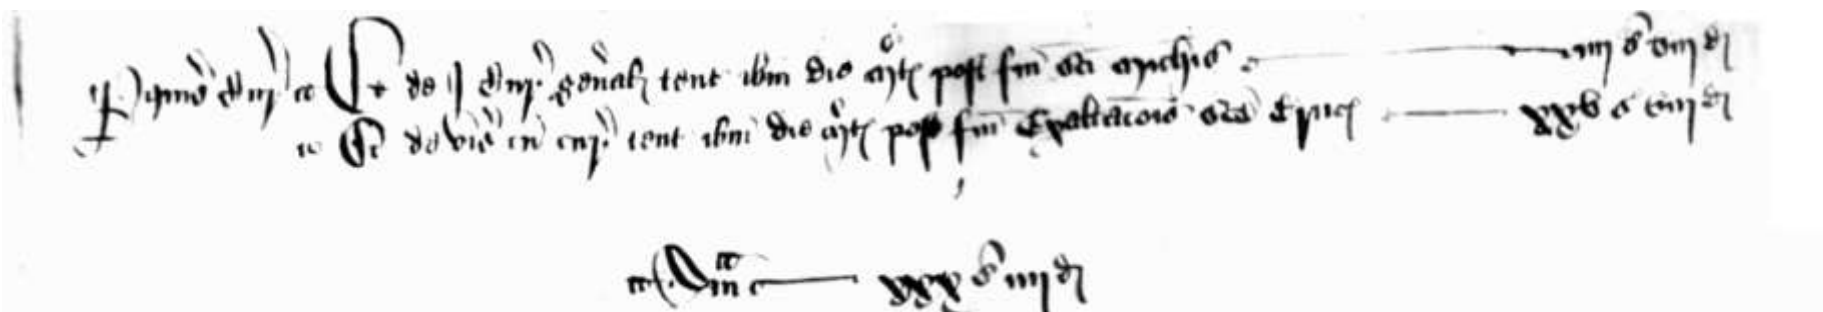 P'quis' Cur' Et de j Cur' gen'al tent ibm die m'rt post fm sci mich'is iiij s viij d
Et de vis' cu' cur' tent ibm die m'rt post fm Exaltacois sce Crucis xxv s viij d
Sma xxx s iiij d